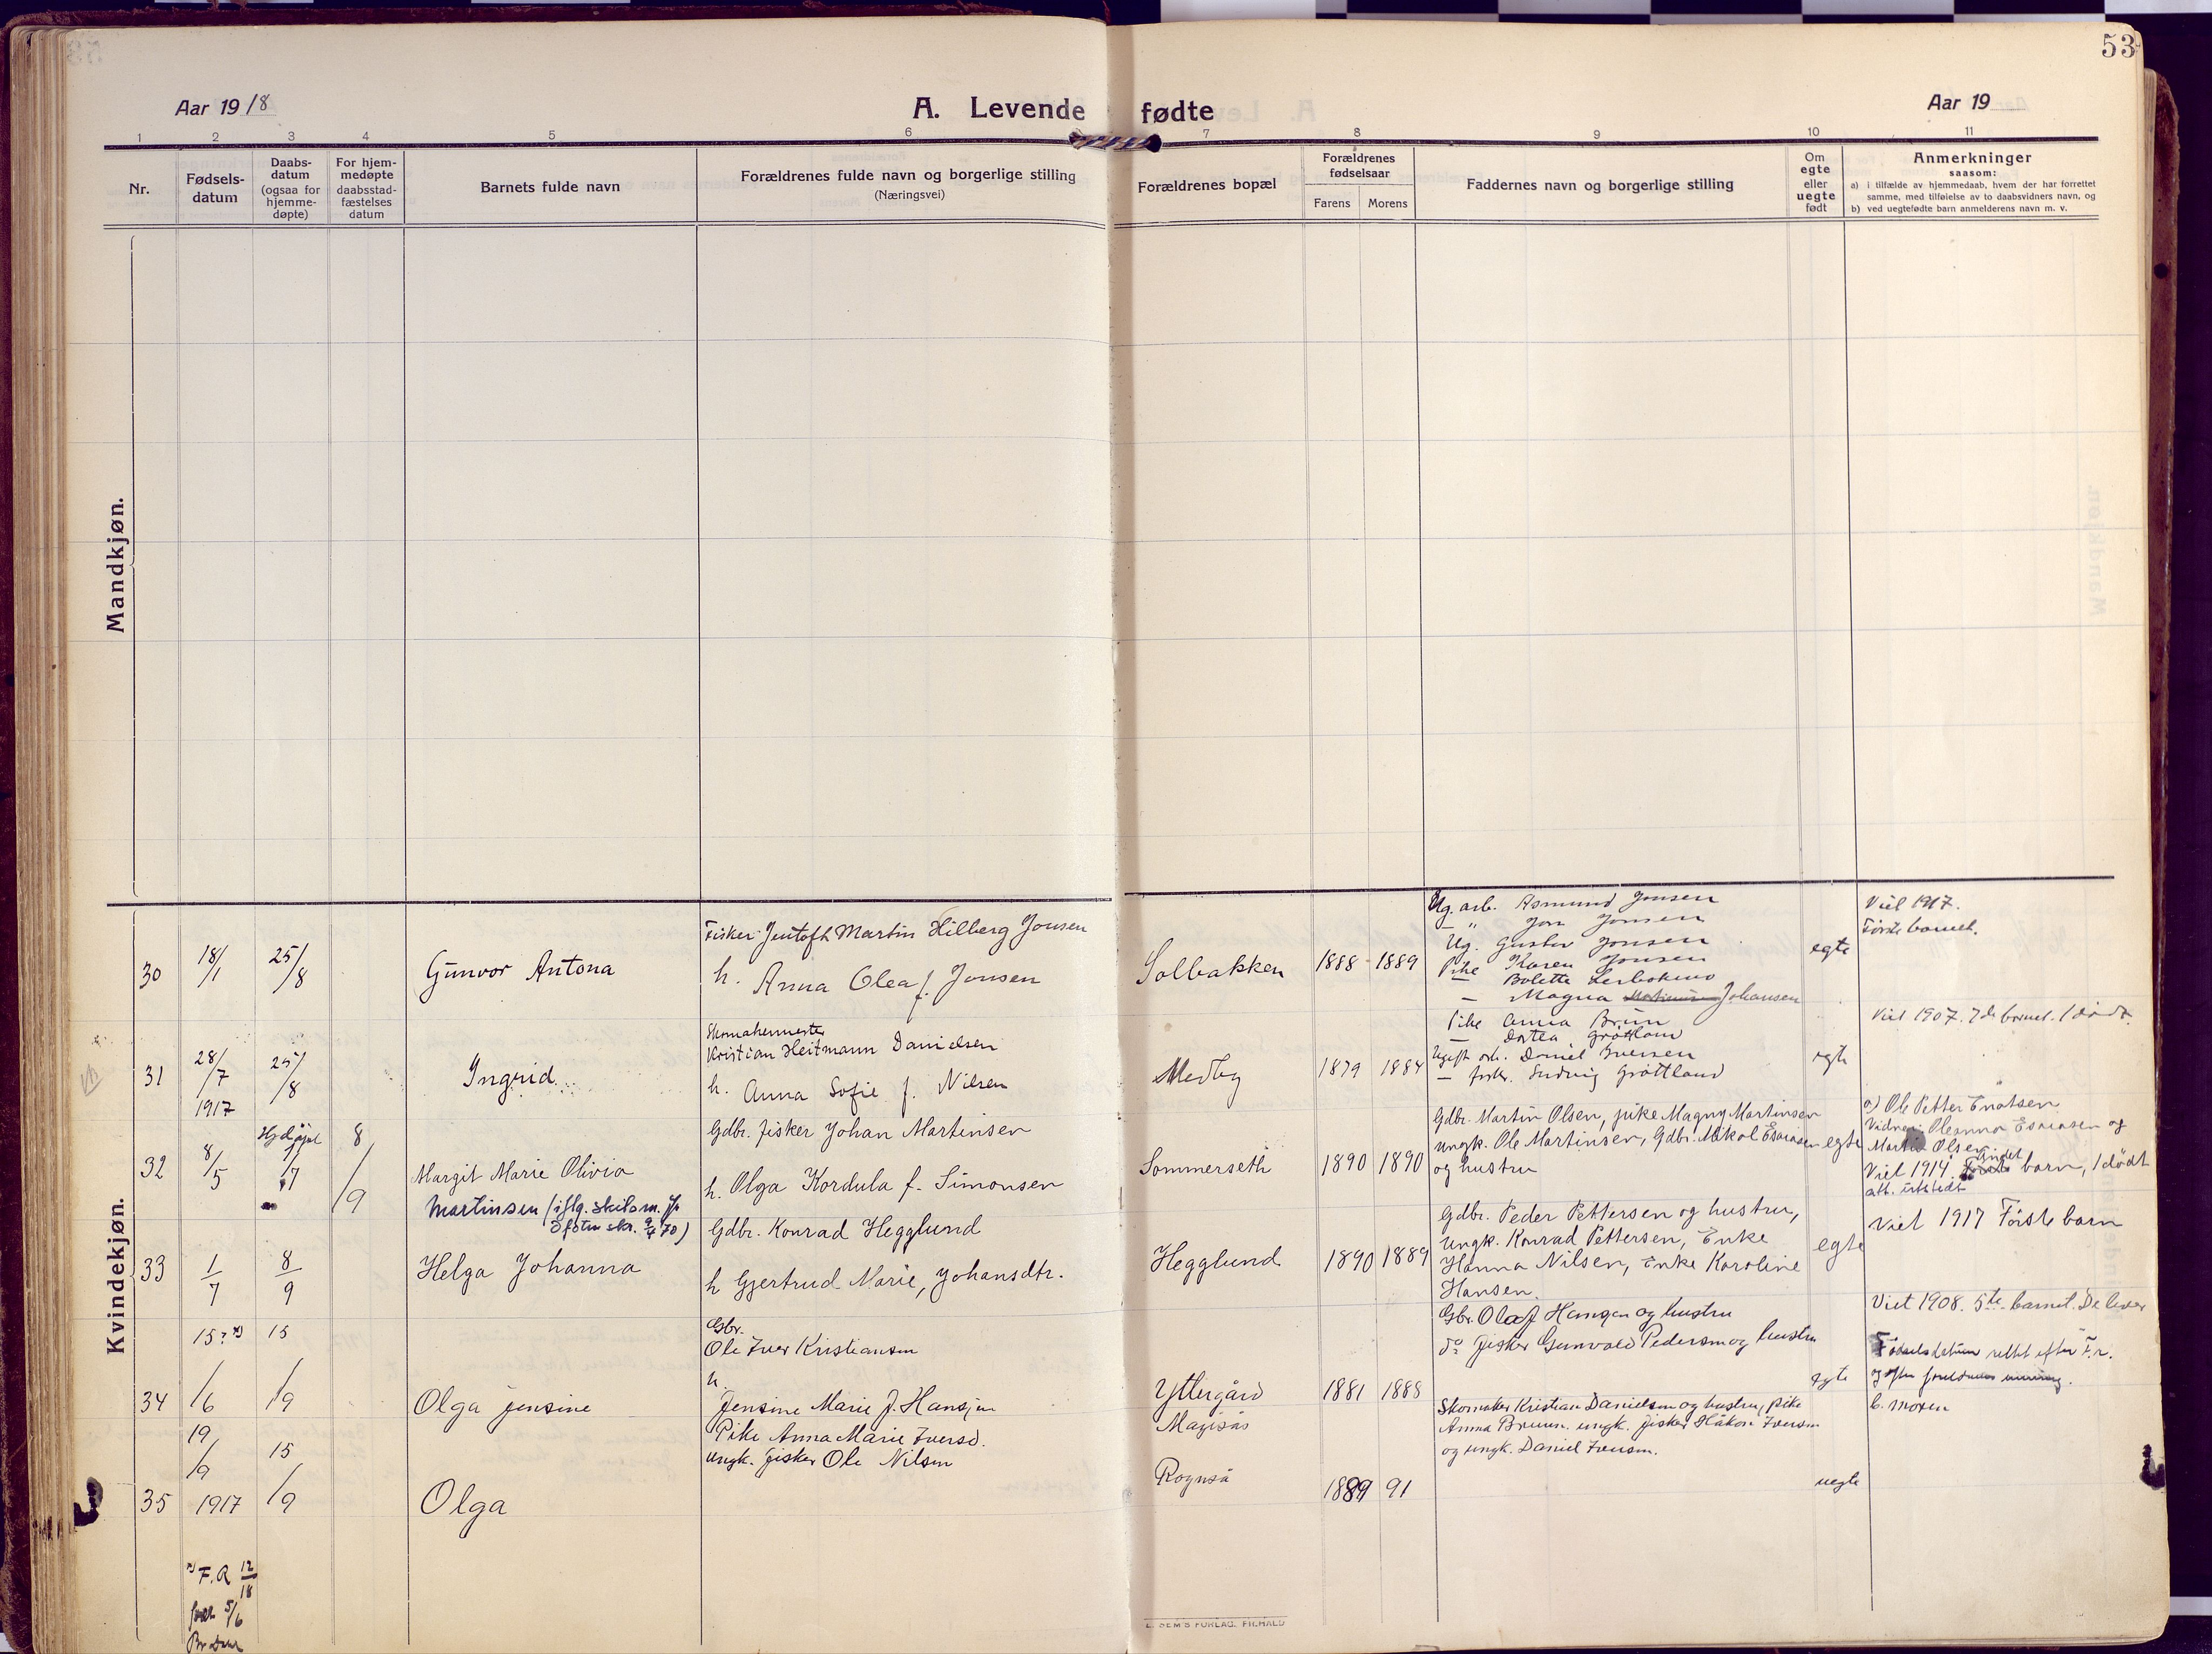 53
Aar 1918
A. Levende fødte
Aar 19
1 2 3 4 5 6 7 8 9 10 11
Nr.
Fødsels-
datum
Daabs-
datum
(ogsaa for
hjemme-
døpte)
For hjem-
medøpte
daabsstad-
fæstelses
datum
Barnets fulde navn
Forældrenes fulde navn og borgerlige stilling
(Næringsvei)
Forældrenes bopæl
Forældrenes
fødselsaar
Farens Morens
Faddernes navn og borgerlige stilling
Om
egte
eller
uegte
født
Anmerkninger
saasom:
a) i tilfælde av hjemmedaab, hvem der har forrettet
samme, med tilføielse av to daabsvidners navn, og
b) ved uegtefødte barn anmelderens navn m. v.
Mandkjøn.
Kvindekjøn.
30
18/1
25/8
Gunvor Antona
Fisker Jentoft Martin Hilberg Jonsen
h. Anna Olea f. Jonsen
Solbakken
1888 1889
Ug. arb. Asmund Jonsen
— " Jon Jonsen
Ug. Gustav Jonsen
Pike Karen Jonsen
— Bolette
— Magna Johansen
egte
Viet 1917.
Første barnet.
31
28/7
1917
25/8
Ingrid
Skomakermester
Kristian Heitmann Danielsen
h. Anna Sofie f. Nilsen
Medby
1879 1884
Pike Anna Brun
— Dortea Grøttland
Ugift arb. Daniel Iversen
— fisk. Ludvig Grøttland
egte
Viet 1907. 7de barnet. 1 dødt.
32
8/5
Hjdøpt
/7
8/9
Margit Marie Olivia
Martinsen (iflg. skilsm. fr
Ofoten skr. 9/4 70)
Gdbr. fisker Johan Martinsen
h. Olga Kordula f. Simonsen
Sommerseth
1890 1890
Gdbr. Martin Olsen, pike Magny Martinsen
Ungk. Ole Martinsen, Gdbr. Mikal Esaiasen
og hustru
egte
a) Ole Petter Enoksen
Vidner: Oleanna Esaiasen og
Martin Olsen
Viet 1914. Andet barn, 1 dødt
att. utstedt
33
1/7
8/9
Helga Johanna
Gdbr. Konrad Hegglund
h Gjertrud Marie, Johansdtr.
Hegglund
1890 1889
Gdbr. Peder Pettersen og hustru,
Ungk. Konrad Pettersen, Enke
Hanna Nilsen, Enke Karoline
Hansen.
egte
Viet 1917 Første barn
34
15?
/6
15/9
Olga Jensine
Gbr.
Ole Iver Kristiansen
h.
Jensine Marie f. Hansen
Yttergård
1881 1888
Gbr. Olaf Hansen og hustru
do fisker Gunvald Pedersen og hustru
egte
Viet 1908. 5te barnet. De lever
Fødselsdatum rettet efter F.r.
og efter foreldrenes
35
19/9
1917
15/9
Olga
Pike Anna Marie Iversd.
ungk. fisker Ole Nilsen
Magisås
Rognså
1889 91
Skomaker Kristian Danielsen og hustru, pike
Anna Bruun. ungk. fisker Håkon Iversen
og ungk. Daniel Iversen.
uegte
b. moren
F. R 12/18
født 5/6
E. SEM'S FORLAG, FR.HALD